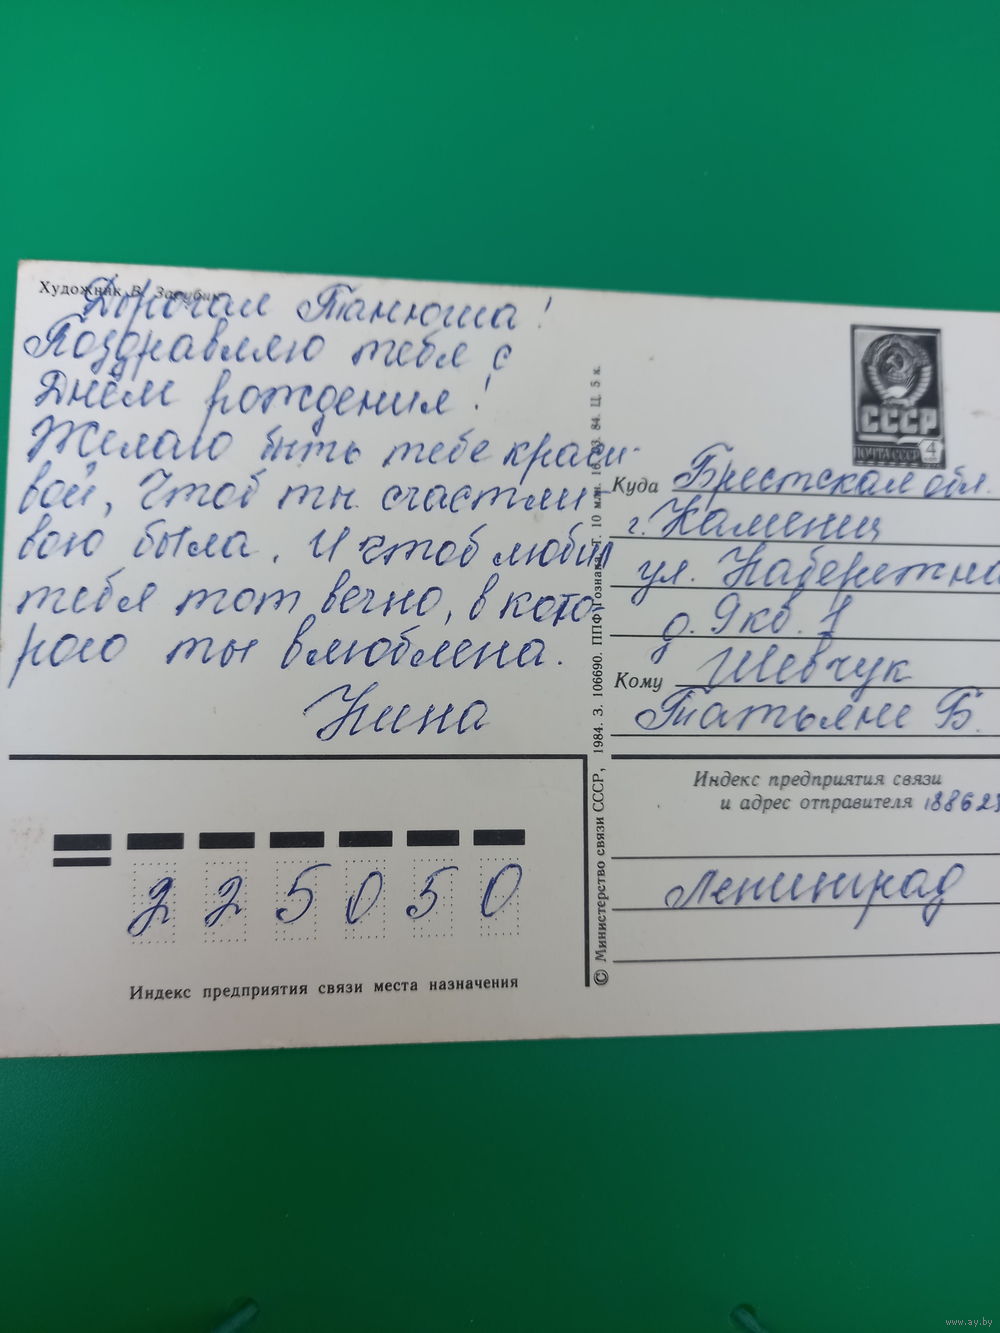 Художник В. Зарубин
Дорогая Танюша!
Поздравляю тебя с
Днём рождения!
Желаю быть тебе краси-
вой, Чтоб ты счастли-
вою была. И чтоб любил
тебя тот вечно, в кото-
рого ты влюблена.
Нина
СССР
ПОЧТА СССР 4 коп
Куда Брестская обл.
г. Каменец
ул. Набережна
д. 9 кв. 1
Кому Шевчук
Татьяне Б.
Индекс предприятия связи
и адрес отправителя 18862
Ленинград
225050
Индекс предприятия связи места назначения
© Министерство связи СССР, 1984. З. 106690. ППФ Гознака. Т. 10 млн. 84. Ц. 5 к.
www.ay.by